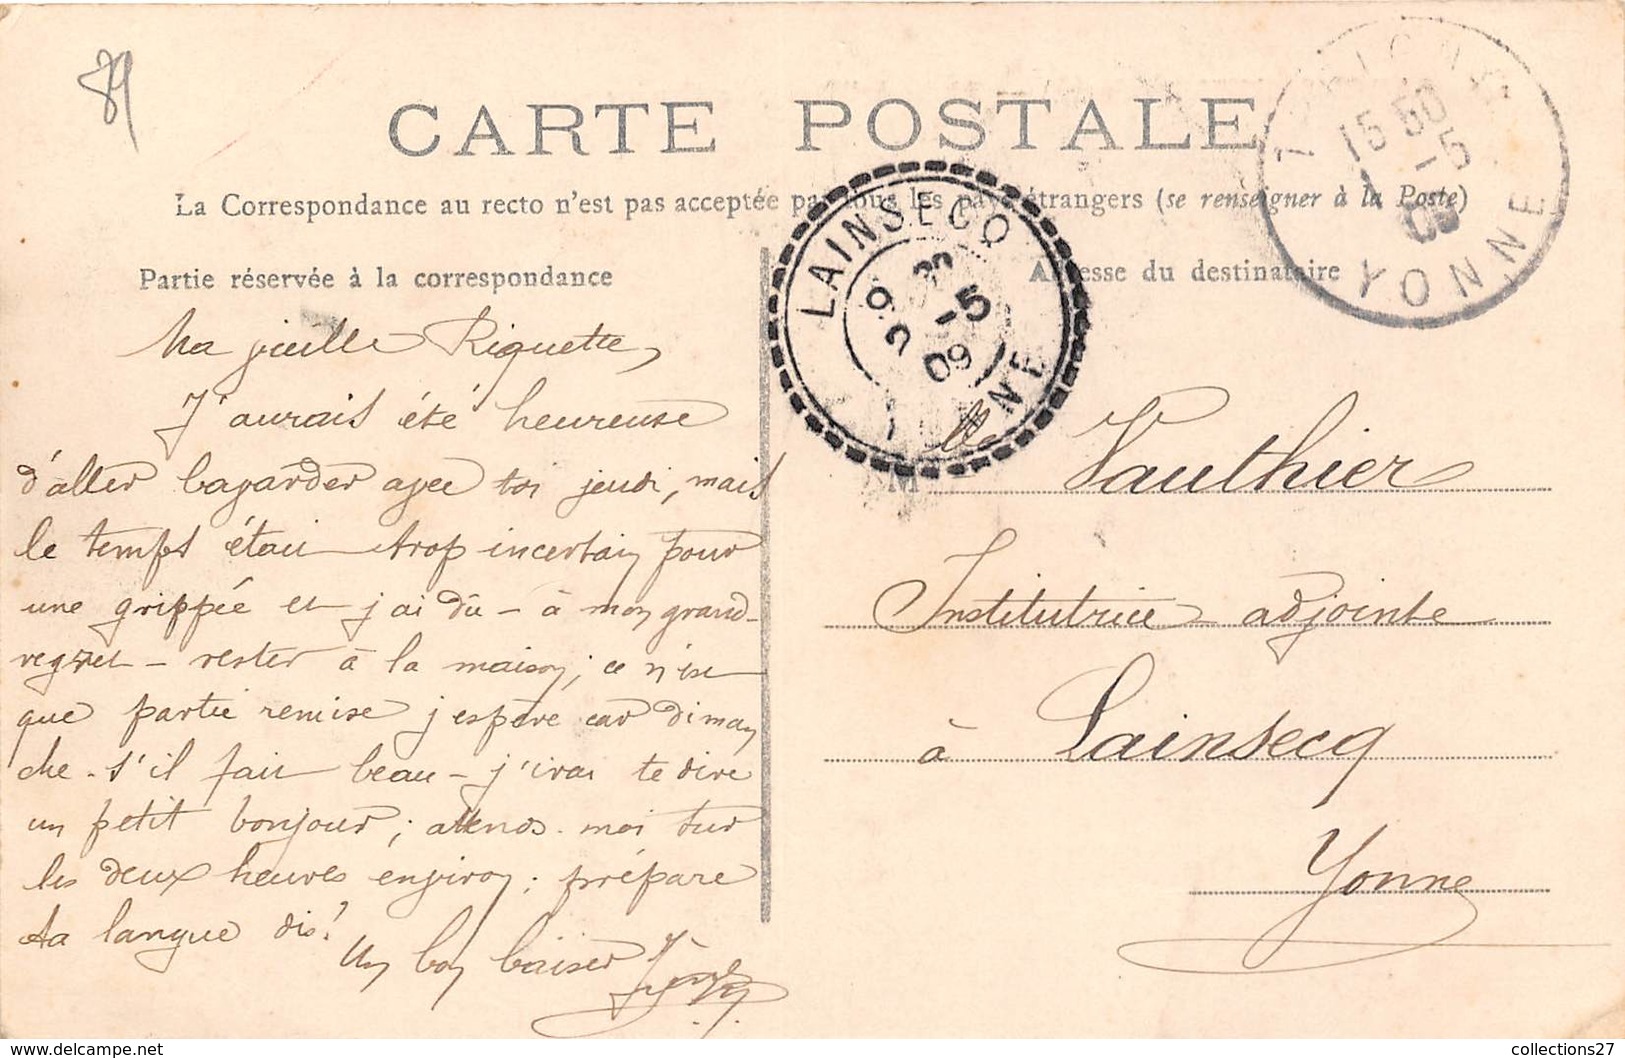 89
CARTE POSTALE
La Correspondance au recto n'est pas acceptée par tous les pays étrangers (se renseigner à la Poste)
Partie réservée à la correspondance
Ma vieille Riquette,
J'aurais été heureuse
d'aller bavarder avec toi jeudi, mais
le temps était trop incertain pour
une grippée et j'ai dû - à mon grand
regret - rester à la maison; ce n'est
que partie remise j'espère car diman
che - s'il fait beau - j'irai te dire
un petit bonjour; attends-moi sur
les deux heures environ; prépare
ta langue dis!
Un bon baiser
Adresse du destinataire
Mlle Vauthier
Institutrice adjointe
à Lainsecq
Yonne
LAINSECQ
9 30
2 -5
09
YONNE
15 50
1 -5
09
YONNE
collections27